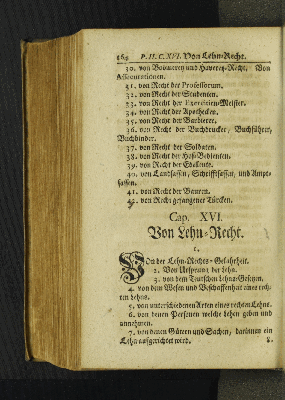 164 P. II. C. XVI. Von Lehn-Recht.
30. von Bodmerey und Haverey-Recht, Von
Assecurationen.
31. von Recht der Professorum.
32. von Recht der Studenten.
33. von Recht der Exercitien-Meister.
34. von Recht der Apothecken.
35. von Recht der Barbierer.
36. von Recht der Buchdrucker, Buchführer,
Buchbinder.
37. von Recht der Soldaten.
38. von Recht der Hof-Bedienten.
39. von Recht der Edelleute.
40. von Landsassen, Schrifftsassen, und Ampt-
sassen.
41. von Recht der Bauren.
42. von Recht gefangener Türcken.
Cap. XVI.
Von Lehn-Recht.
1.
Von der Lehn-Rechts-Gelahrheit.
2. Von Ursprung der Lehn.
3. von dem Teutschen Lehns-Gesetzen.
4. von dem Wesen und Beschaffenheit eines rech-
ten Lehns.
5. von unterschiedenen Arten eines rechten Lehns.
6. von denen Personen welche Lehen geben und
annehmen.
7. von denen Gütern und Sachen, darinnen ein
Lehn aufgerichtet wird. 8.